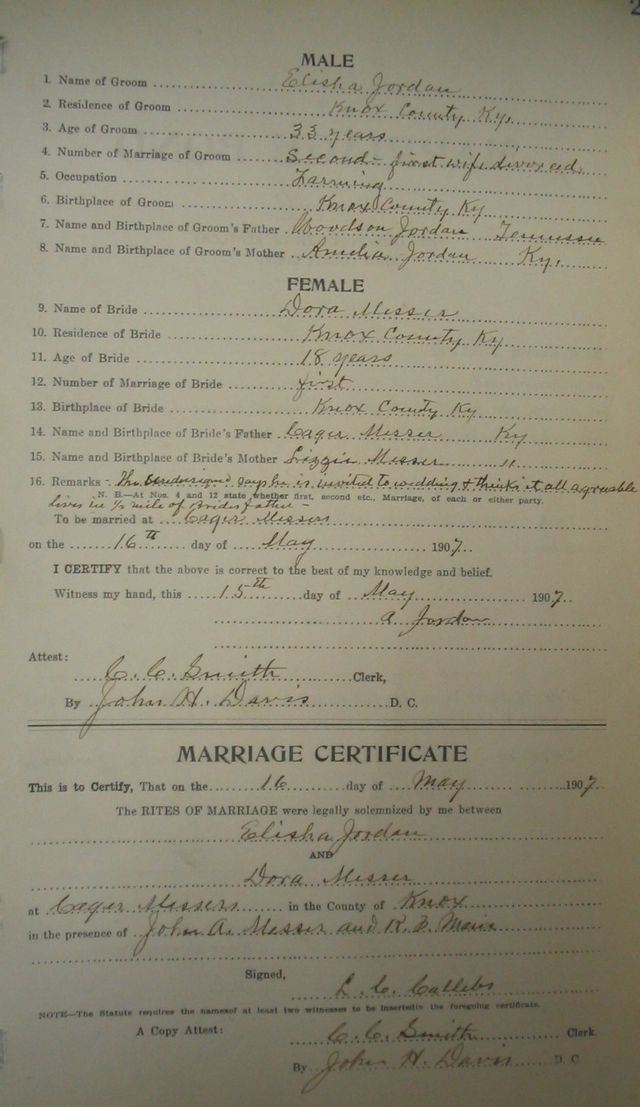 2
MALE
1. Name of Groom Elisha Jordan
2. Residence of Groom Knox County Ky,
3. Age of Groom 33 years
4. Number of Marriage of Groom Second - first wife divorced
5. Occupation Farming
6. Birthplace of Groom Knox County Ky
7. Name and Birthplace of Groom's Father Woodson Jordan Tennessee
8. Name and Birthplace of Groom's Mother Amelia Jordan Ky,
FEMALE
9. Name of Bride Dora Messer
10. Residence of Bride Knox County Ky
11. Age of Bride 18 years
12. Number of Marriage of Bride first
13. Birthplace of Bride Knox County Ky
14. Name and Birthplace of Bride's Father Cager Messer Ky
15. Name and Birthplace of Bride's Mother Lizzie Messer "
16. Remarks - The undersigned says he is invited to wedding & thinks it all agreeable
N. B.—At Nos. 4 and 12 state whether first, second etc., Marriage, of each or either party.
lives in 1/2 mile of Brides father -
To be married at Cager Messers
on the 16th day of May 1907
I CERTIFY that the above is correct to the best of my knowledge and belief.
Witness my hand, this 15th day of May 1907
A Jordan
Attest:
C. C. Smith Clerk,
By John H. Davis D. C.
MARRIAGE CERTIFICATE
This is to Certify, That on the 16 day of May 1907
The RITES OF MARRIAGE were legally solemnized by me between
Elisha Jordan
AND
Dora Messer
at Cager Messers in the County of Knox
in the presence of John A. Messer and K.
Signed,
L. C.
NOTE—The Statute requires the namesof at least two witnesses to be insertedin the foregoing certificate.
A Copy Attest: C. C. Smith Clerk
By John H. Davis D. C